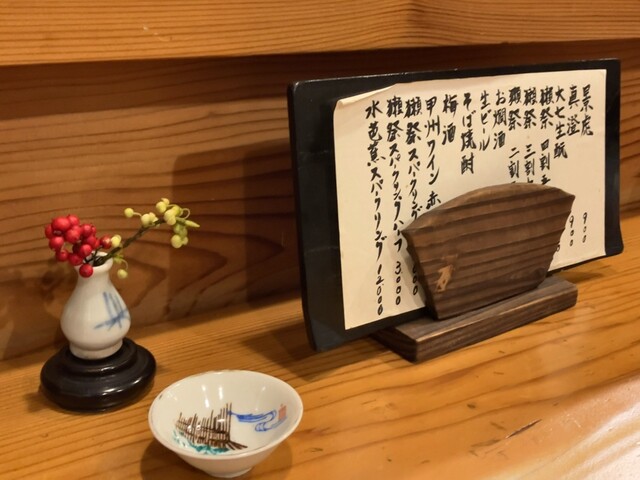 景虎 900
真澄 900
大七生酛
獺祭 四割五
獺祭 三割
獺祭 二割
お燗酒
生ビール
そば焼酎
梅酒
甲州ワイン 赤
獺祭スパークリング
獺祭スパークリングハーフ 3000
水芭蕉スパークリング 12000